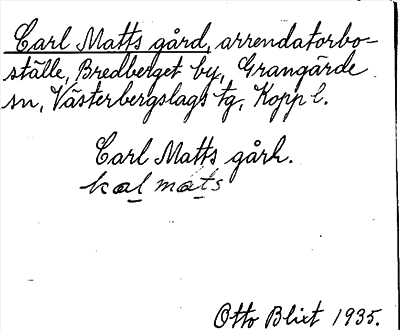 Carl Matts gård, arrendatorbo-
ställe, Bredberget by, Grangärde
sn, Västerbergslags tg, Kopp l.
Carl Matts gårh.
kal mats
Otto Blixt 1935.